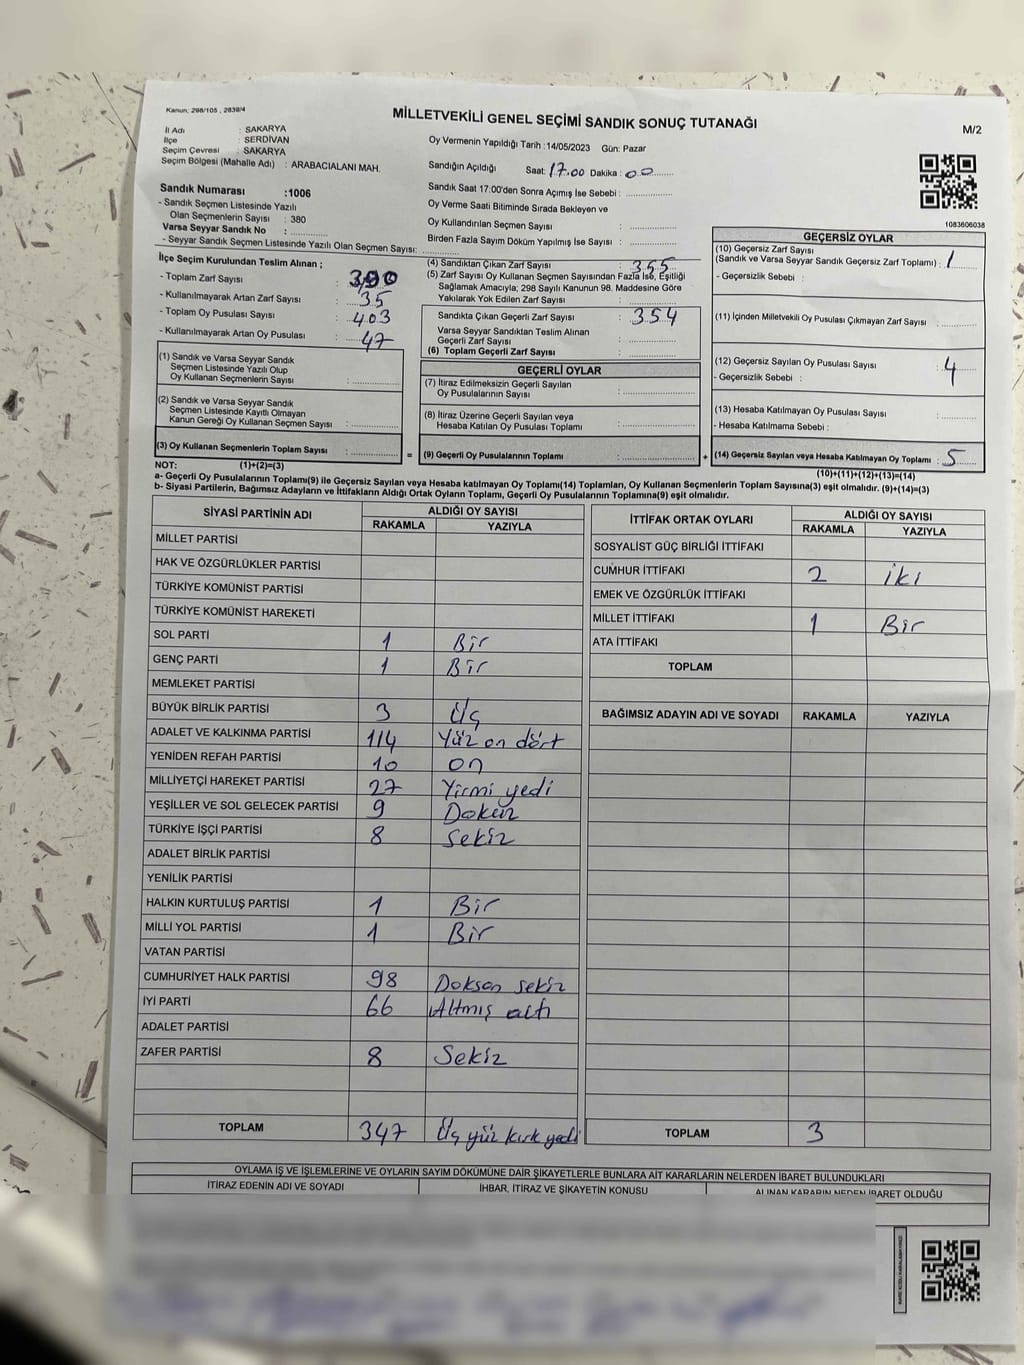 Kanun; 298/105 , 2839/4
MİLLETVEKİLİ GENEL SEÇİMİ SANDIK SONUÇ TUTANAĞI
M/2
İl Adı : SAKARYA
İlçe : SERDİVAN
Seçim Çevresi : SAKARYA
Seçim Bölgesi (Mahalle Adı) : ARABACIALANI MAH.
Sandık Numarası :1006
- Sandık Seçmen Listesinde Yazılı
Olan Seçmenlerin Sayısı : 380
Varsa Seyyar Sandık No :
- Seyyar Sandık Seçmen Listesinde Yazılı Olan Seçmen Sayısı:
Oy Vermenin Yapıldığı Tarih :14/05/2023 Gün: Pazar
Sandığın Açıldığı Saat: 17.00 Dakika : 00
Sandık Saat 17:00'den Sonra Açımış İse Sebebi :
Oy Verme Saati Bitiminde Sırada Bekleyen ve
Oy Kullandırılan Seçmen Sayısı :
Birden Fazla Sayım Döküm Yapılmış İse Sayısı :
1083606038
İlçe Seçim Kurulundan Teslim Alınan ;
- Toplam Zarf Sayısı : 390
- Kullanılmayarak Artan Zarf Sayısı : 35
- Toplam Oy Pusulası Sayısı : 403
- Kullanılmayarak Artan Oy Pusulası : 47
(1) Sandık ve Varsa Seyyar Sandık
Seçmen Listesinde Yazılı Olup
Oy Kullanan Seçmenlerin Sayısı :
(2) Sandık ve Varsa Seyyar Sandık
Seçmen Listesinde Kayıtlı Olmayan
Kanun Gereği Oy Kullanan Seçmen Sayısı :
(3) Oy Kullanan Seçmenlerin Toplam Sayısı :
(4) Sandıktan Çıkan Zarf Sayısı : 355
(5) Zarf Sayısı Oy Kullanan Seçmen Sayısından Fazla İse, Eşitliği
Sağlamak Amacıyla; 298 Sayılı Kanunun 98. Maddesine Göre
Yakılarak Yok Edilen Zarf Sayısı :
Sandıkta Çıkan Geçerli Zarf Sayısı : 354
Varsa Seyyar Sandıktan Teslim Alınan
Geçerli Zarf Sayısı :
(6) Toplam Geçerli Zarf Sayısı :
GEÇERLİ OYLAR
(7) İtiraz Edilmeksizin Geçerli Sayılan
Oy Pusulalarının Sayısı :
(8) İtiraz Üzerine Geçerli Sayılan veya
Hesaba Katılan Oy Pusulası Toplamı :
= (9) Geçerli Oy Pusulalarının Toplamı :
GEÇERSİZ OYLAR
(10) Geçersiz Zarf Sayısı
(Sandık ve Varsa Seyyar Sandık Geçersiz Zarf Toplamı) : 1
- Geçersizlik Sebebi :
(11) İçinden Milletvekili Oy Pusulası Çıkmayan Zarf Sayısı :
(12) Geçersiz Sayılan Oy Pusulası Sayısı : 4
- Geçersizlik Sebebi :
(13) Hesaba Katılmayan Oy Pusulası Sayısı :
- Hesaba Katılmama Sebebi :
+ (14) Geçersiz Sayılan veya Hesaba Katılmayan Oy Toplamı : 5
NOT: (1)+(2)=(3)
(10)+(11)+(12)+(13)=(14)
a- Geçerli Oy Pusulalarının Toplamı(9) ile Geçersiz Sayılan veya Hesaba katılmayan Oy Toplamı(14) Toplamları, Oy Kullanan Seçmenlerin Toplam Sayısına(3) eşit olmalıdır. (9)+(14)=(3)
b- Siyasi Partilerin, Bağımsız Adayların ve İttifakların Aldığı Ortak Oyların Toplamı, Geçerli Oy Pusulalarının Toplamına(9) eşit olmalıdır.
SİYASİ PARTİNİN ADI ALDIĞI OY SAYISI
RAKAMLA YAZIYLA
MİLLET PARTİSİ
HAK VE ÖZGÜRLÜKLER PARTİSİ
TÜRKİYE KOMÜNİST PARTİSİ
TÜRKİYE KOMÜNİST HAREKETİ
SOL PARTİ 1 Bir
GENÇ PARTİ 1 Bir
MEMLEKET PARTİSİ
BÜYÜK BİRLİK PARTİSİ 3 Üç
ADALET VE KALKINMA PARTİSİ 114 Yüz on dört
YENİDEN REFAH PARTİSİ 10 on
MİLLİYETÇİ HAREKET PARTİSİ 27 Yirmi yedi
YEŞİLLER VE SOL GELECEK PARTİSİ 9 Dokuz
TÜRKİYE İŞÇİ PARTİSİ 8 Sekiz
ADALET BİRLİK PARTİSİ
YENİLİK PARTİSİ
HALKIN KURTULUŞ PARTİSİ 1 Bir
MİLLİ YOL PARTİSİ 1 Bir
VATAN PARTİSİ
CUMHURİYET HALK PARTİSİ 98 Doksan sekiz
İYİ PARTİ 66 Altmış altı
ADALET PARTİSİ
ZAFER PARTİSİ 8 Sekiz
TOPLAM 347 Üç yüz kırk yedi
İTTİFAK ORTAK OYLARI ALDIĞI OY SAYISI
RAKAMLA YAZIYLA
SOSYALİST GÜÇ BİRLİĞİ İTTİFAKI
CUMHUR İTTİFAKI 2 iki
EMEK VE ÖZGÜRLÜK İTTİFAKI
MİLLET İTTİFAKI 1 Bir
ATA İTTİFAKI
TOPLAM
BAĞIMSIZ ADAYIN ADI VE SOYADI RAKAMLA YAZIYLA
TOPLAM 3
OYLAMA İŞ VE İŞLEMLERİNE VE OYLARIN SAYIM DÖKÜMÜNE DAİR ŞİKAYETLERLE BUNLARA AİT KARARLARIN NELERDEN İBARET BULUNDUKLARI
İTİRAZ EDENİN ADI VE SOYADI İHBAR, İTİRAZ VE ŞİKAYETİN KONUSU ALINAN KARARIN NEDEN İBARET OLDUĞU